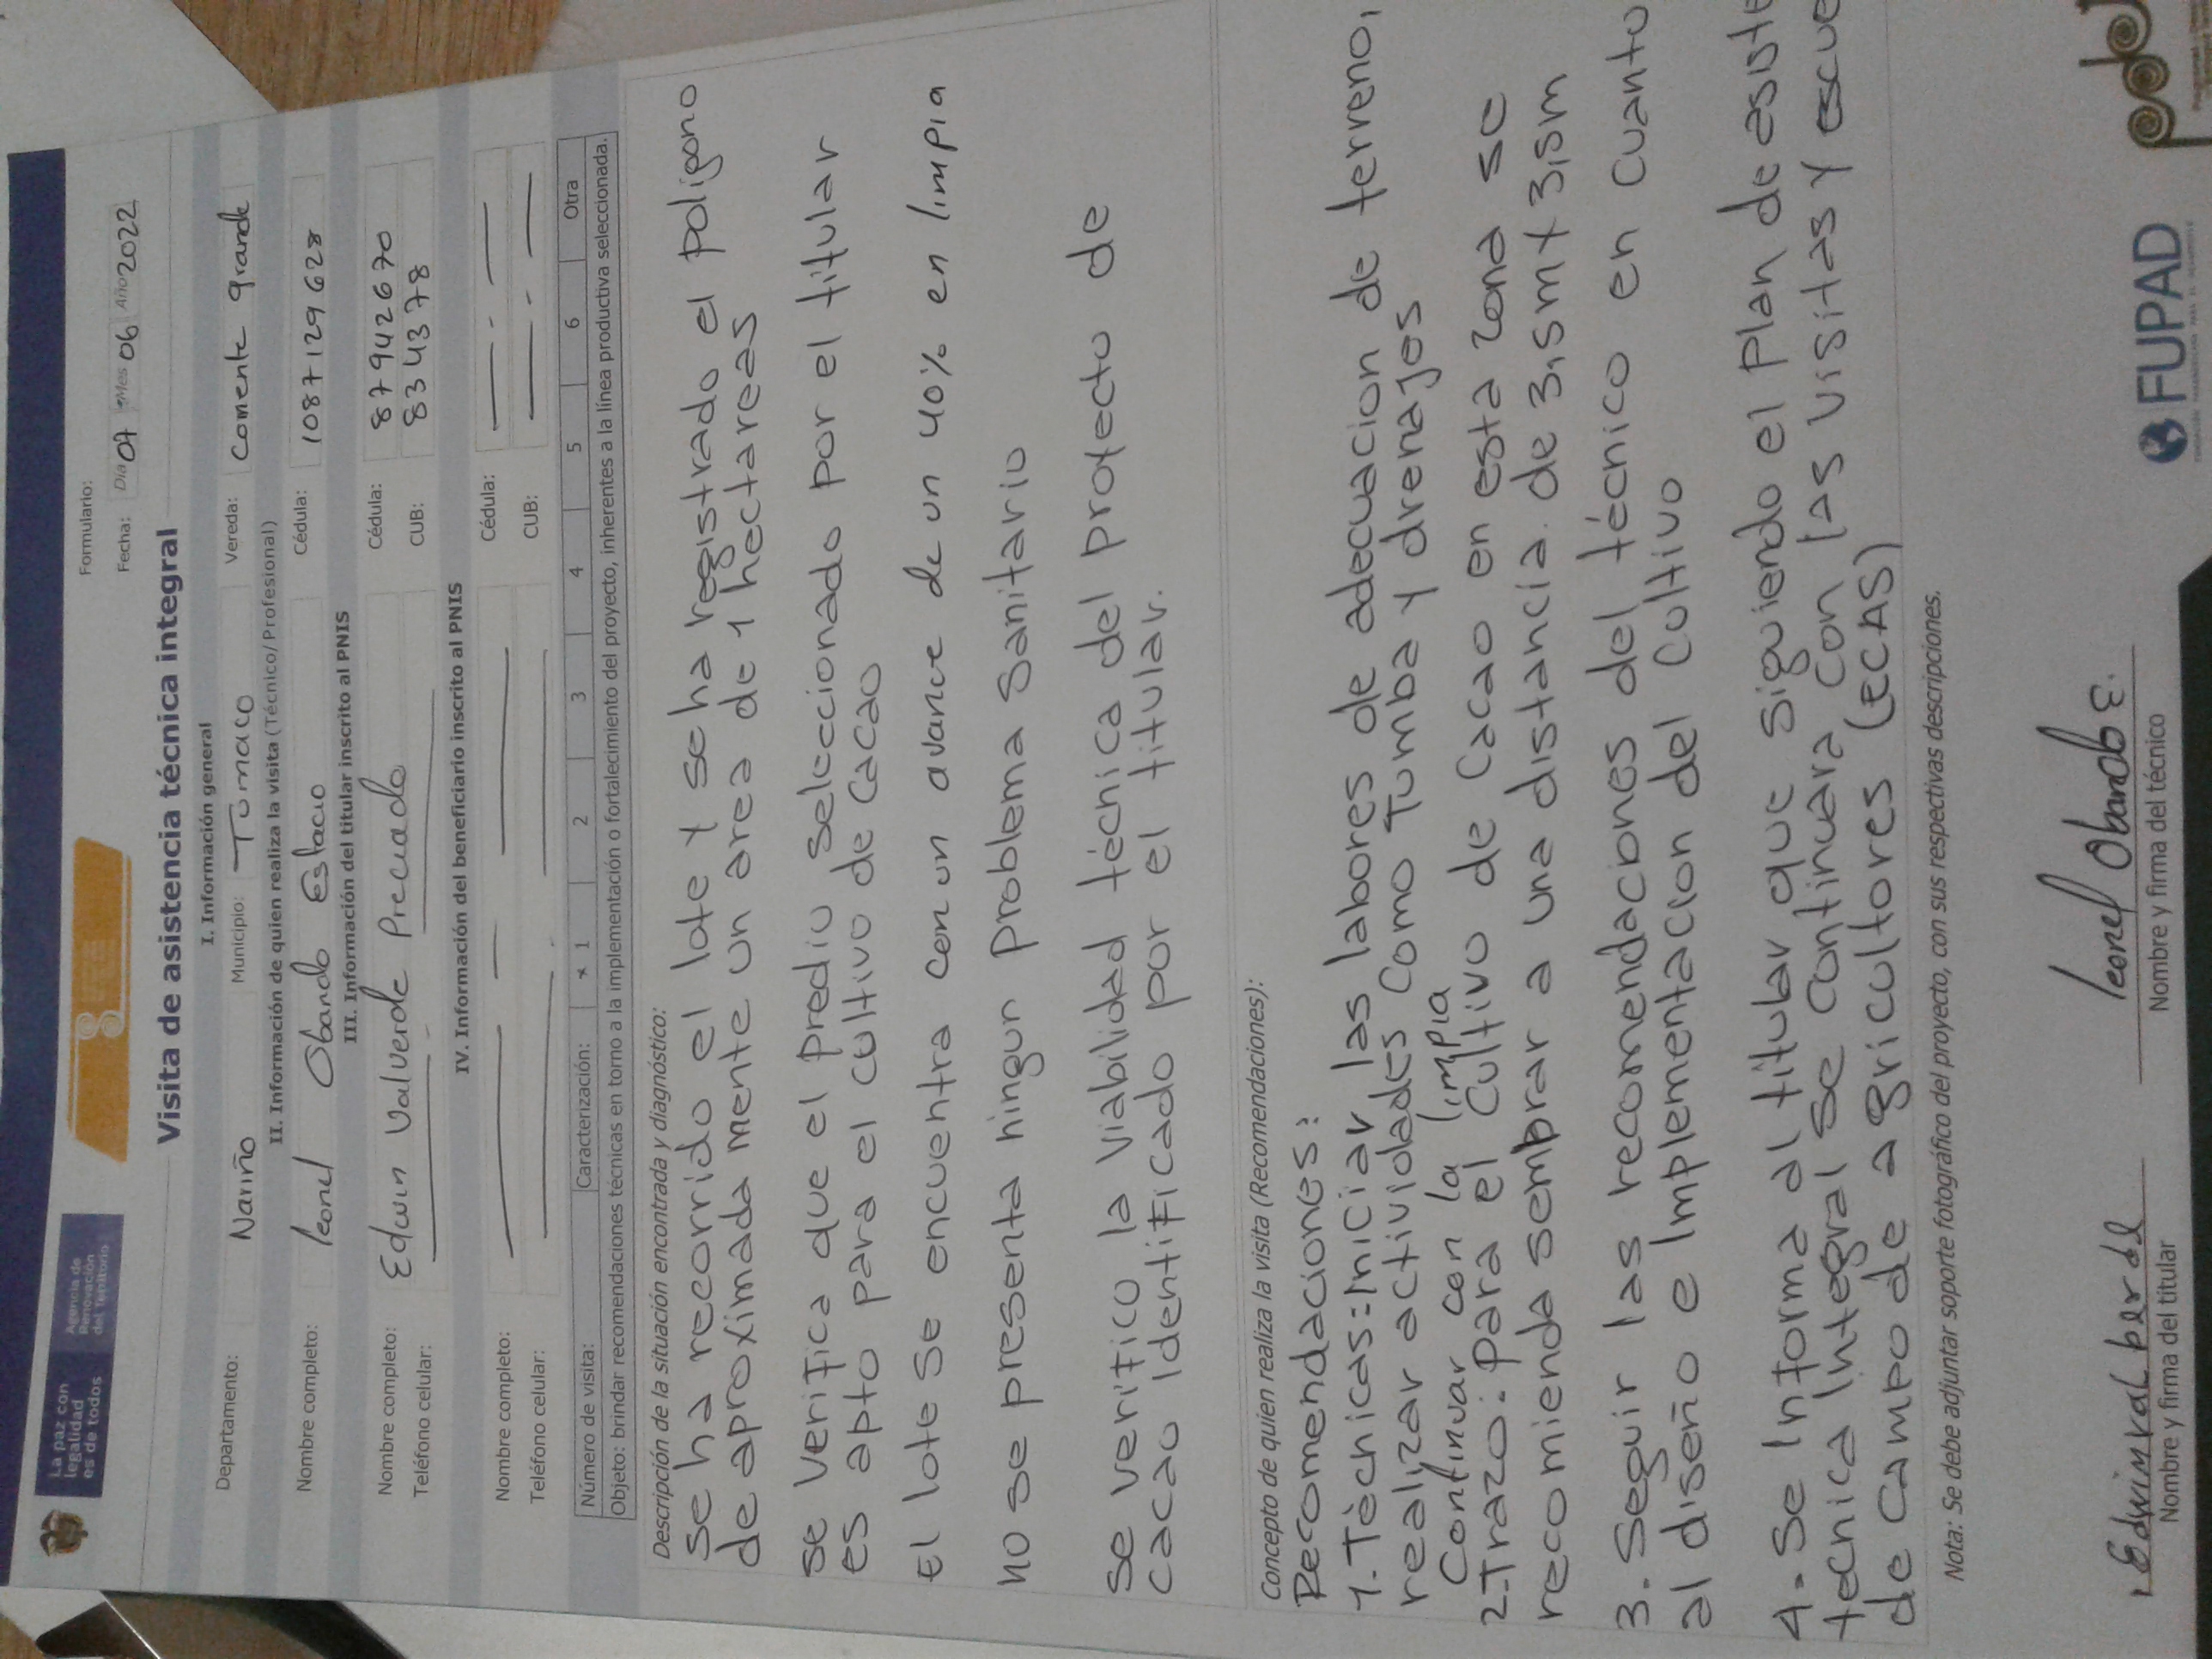 La paz con
legalidad
es de todos
Agencia de
Renovación
del Territorio
Formulario:
Fecha: Día 07 Mes 06 Año 2022
Visita de asistencia técnica integral
I. Información general
Departamento: Nariño Municipio: Tumaco Vereda: Comente grande
II. Información de quien realiza la visita (Técnico/Profesional)
Nombre completo: leonel Obando Estacio Cédula: 1087129628
III. Información del titular inscrito al PNIS
Nombre completo: Edwin Valverde Preciado Cédula: 87942670
Teléfono celular: CUB: 834378
IV. Información del beneficiario inscrito al PNIS
Nombre completo: Cédula:
Teléfono celular: CUB:
Número de visita: Caracterización: x 1 2 3 4 5 6 Otra
Objeto: brindar recomendaciones técnicas en torno a la implementación o fortalecimiento del proyecto, inherentes a la línea productiva seleccionada.
Descripción de la situación encontrada y diagnóstico:
se ha recorrido el lote y se ha registrado el poligono
de aproximada mente un area de 1 hectareas
se verifica que el predio seleccionado por el titular
es apto para el cultivo de cacao
El lote se encuentra con un avance de un 40% en limpia
no se presenta ningun problema sanitario
se verifico la viabilidad técnica del protecto de
cacao identificado por el titular.
Concepto de quien realiza la visita (Recomendaciones):
Recomendaciones:
1-Tècnicas:Iniciar las labores de adecuacion de terreno,
realizar actividades como Tumba y drenajes
Continuar con la limpia
2-Trazo: para el cultivo de cacao en esta zona se
recomienda sembrar a una distancia de 3,5mt x 3,5m
3. Seguir las recomendaciones del técnico en cuanto
al diseño e implementacion del cultivo
4. Se informa al titular que siguiendo el plan de asiste
tecnica integral se continuara con las visitas y escue
de campo de agricultores (ECAS)
Nota: Se debe adjuntar soporte fotográfico del proyecto, con sus respectivas descripciones.
Edwinvalberde
Nombre y firma del titular
leonel Obando E.
Nombre y firma del técnico
FUPAD